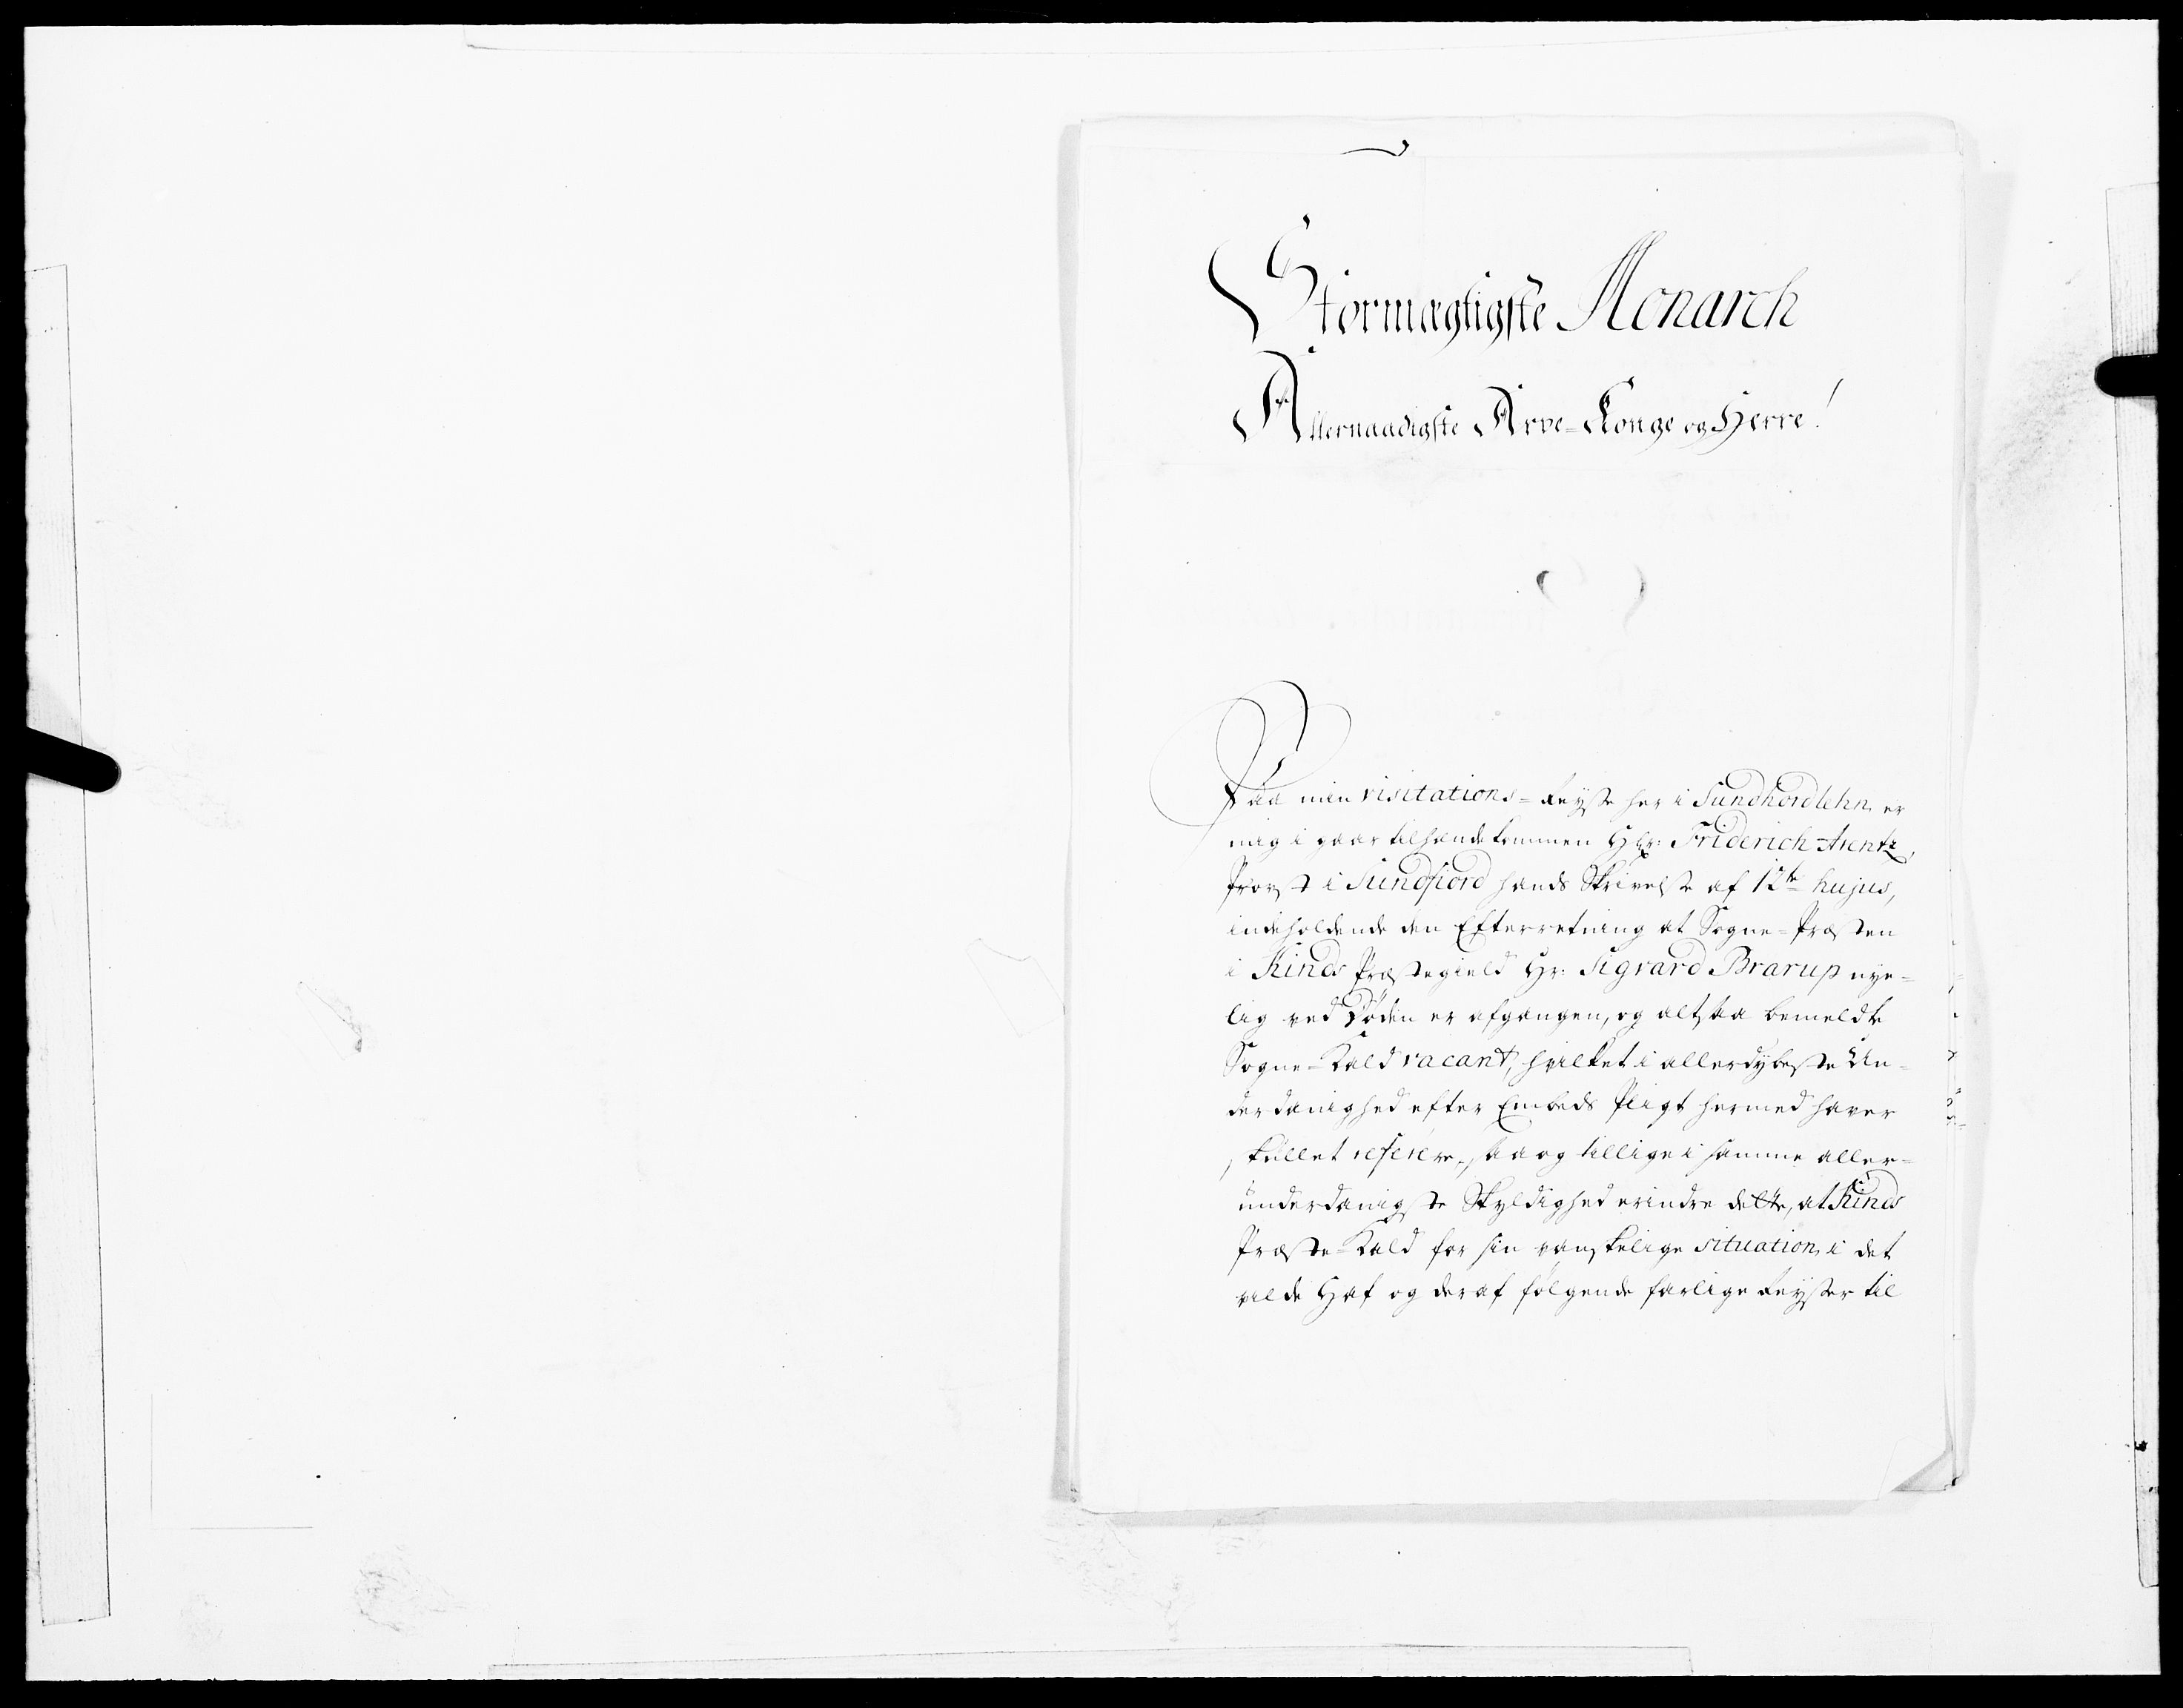 Stormægtigste Monarch
Allernaadigste Arve-Konge og Herre!
Paa min visitations-Reyse her i Sundhordlehn er
mig i gaar tilhændekommen Hr: Friderich Arentz,
Provst i Sundfiord hands Skrivelse af 12te hujus,
indeholdende den Efterretning at Sogne-Præsten
i Kinds Præstegield Hr: Sigvard Brarup nye-
lig ved Døden er afgangen, og altsaa bemeldte
Sogne-Kald vacant, hvilket i allerdybeste Un-
derdanighed efter Embeds Pligt hermed haver
skullet referere, saa og tillige i samme aller-
underdanigste Skyldighed erindre dette, at Kinds
Præste-Kald for sin vanskelige situation i det
vilde Haf og deraf følgende farlige Reyser til